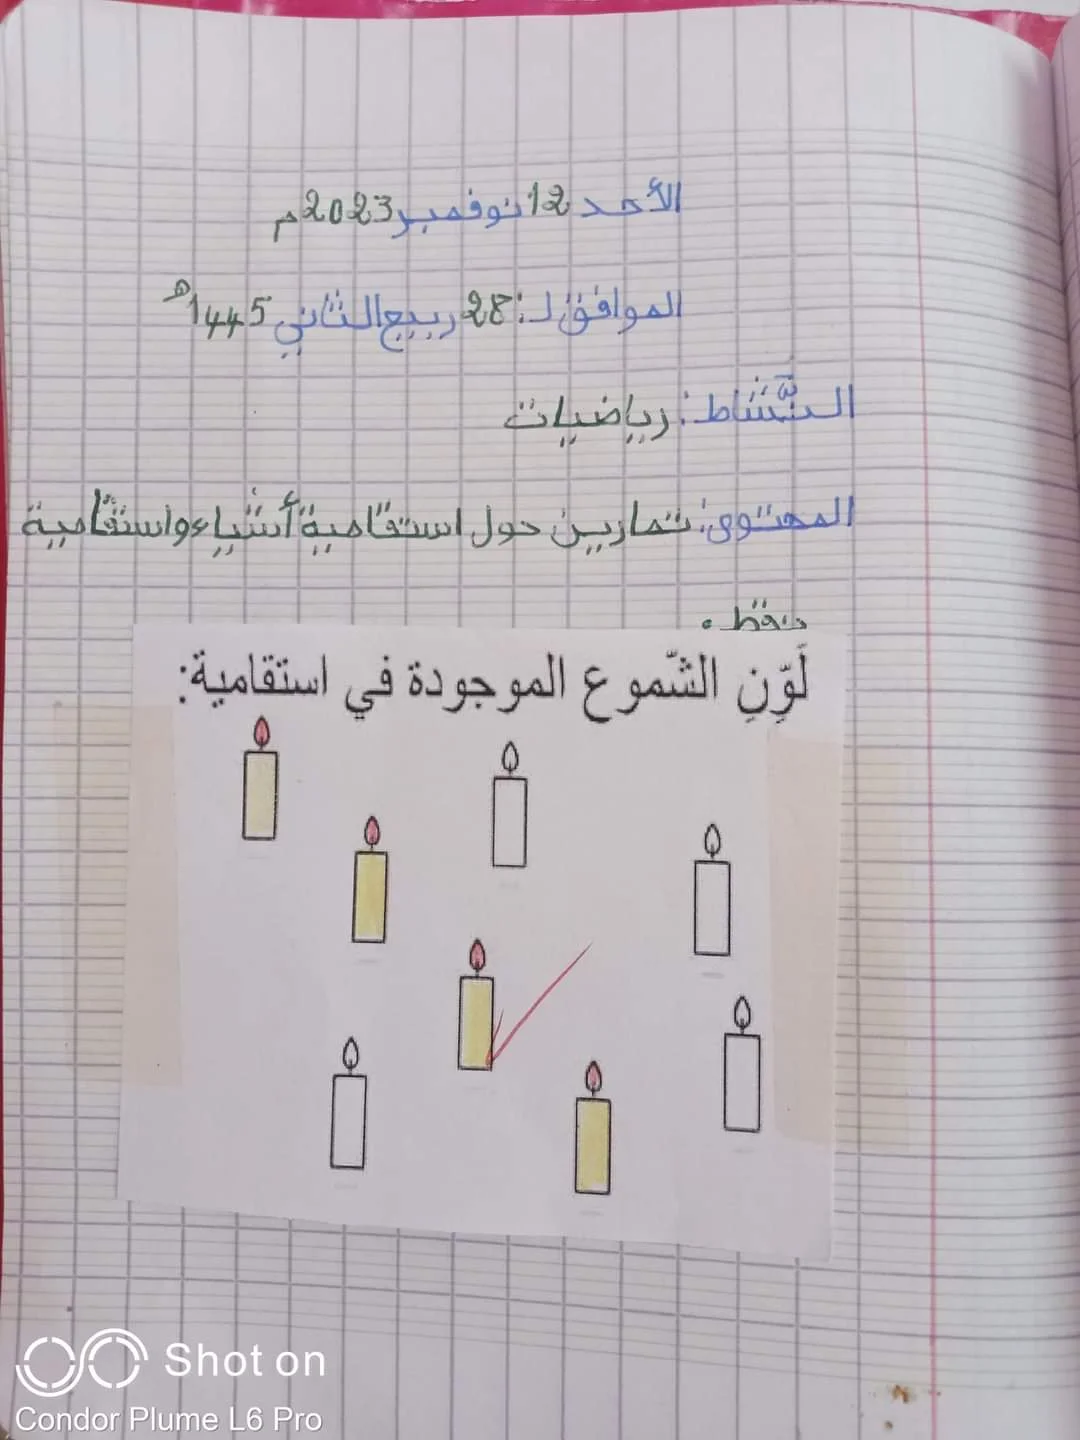 الأحد 12 نوفمبر 2023م
الموافق لـ: 28 ربيع الثاني 1445هـ
النّشاط: رياضيات
المحتوى: تمارين حول استقامية أشياء واستقامية
نقط.
لَوِّنِ الشّموع الموجودة في استقامية:
Shot on
Condor Plume L6 Pro